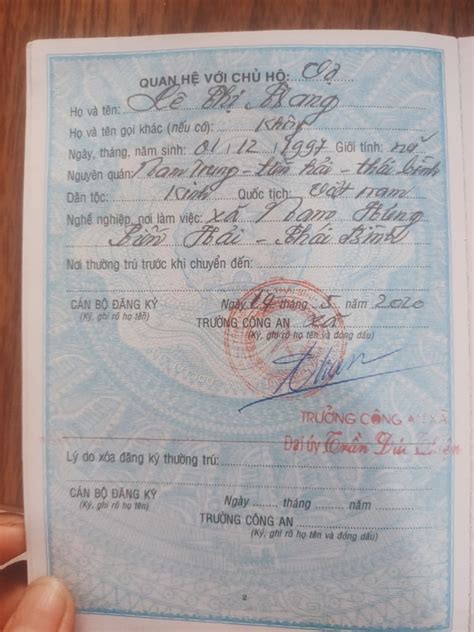 QUAN HỆ VỚI CHỦ HỘ: Vợ
Họ và tên: Lê Thị Trang
Họ và tên gọi khác (nếu có): Không
Ngày, tháng, năm sinh: 01/12/1997 Giới tính: nữ
Nguyên quán: Nam Trung - tiền hải - thái bình
Dân tộc: Kinh Quốc tịch: Việt nam
Nghề nghiệp, nơi làm việc: xã Nam Hưng
Tiền Hải - Thái Bình
Nơi thường trú trước khi chuyển đến:
CÁN BỘ ĐĂNG KÝ
(Ký, ghi rõ họ tên)
Ngày 19 tháng 5 năm 2020
TRƯỞNG CÔNG AN xã
(Ký, ghi rõ họ tên và đóng dấu)
TRƯỞNG CÔNG AN XÃ
Đại úy Trần
Lý do xóa đăng ký thường trú:
CÁN BỘ ĐĂNG KÝ
(Ký, ghi rõ họ tên)
Ngày ...... tháng ...... năm ......
TRƯỞNG CÔNG AN
(Ký, ghi rõ họ tên và đóng dấu)
2